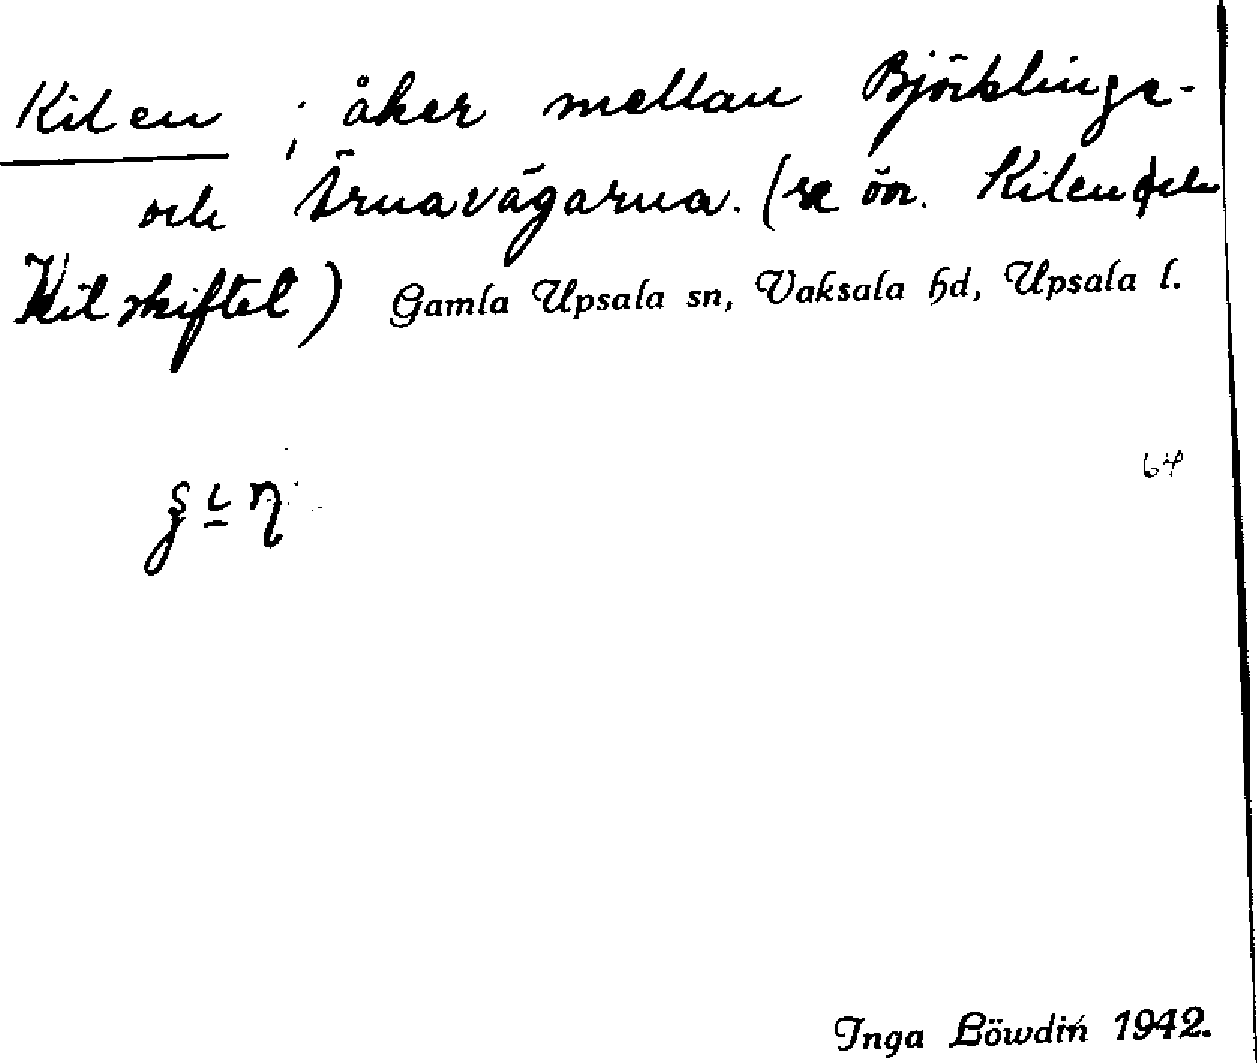 Kilen ; åker mellan Björklinge-
och Ärnavägarna. (se ön. Kilen och
Kilskiftet) Gamla Upsala sn, Vaksala hd, Upsala l.
64
Inga Löwdin 1942.